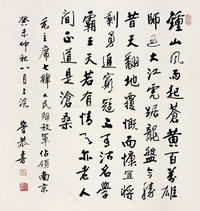 鍾山風雨起蒼黃百萬雄
師過大江虎踞龍盤今勝
昔天翻地覆慨而慷宜將
剩勇追窮寇不可沽名學
霸王天若有情天亦老人
間正道是滄桑
毛主席七律人民解放軍佔領南京
癸未仲秋八月上浣